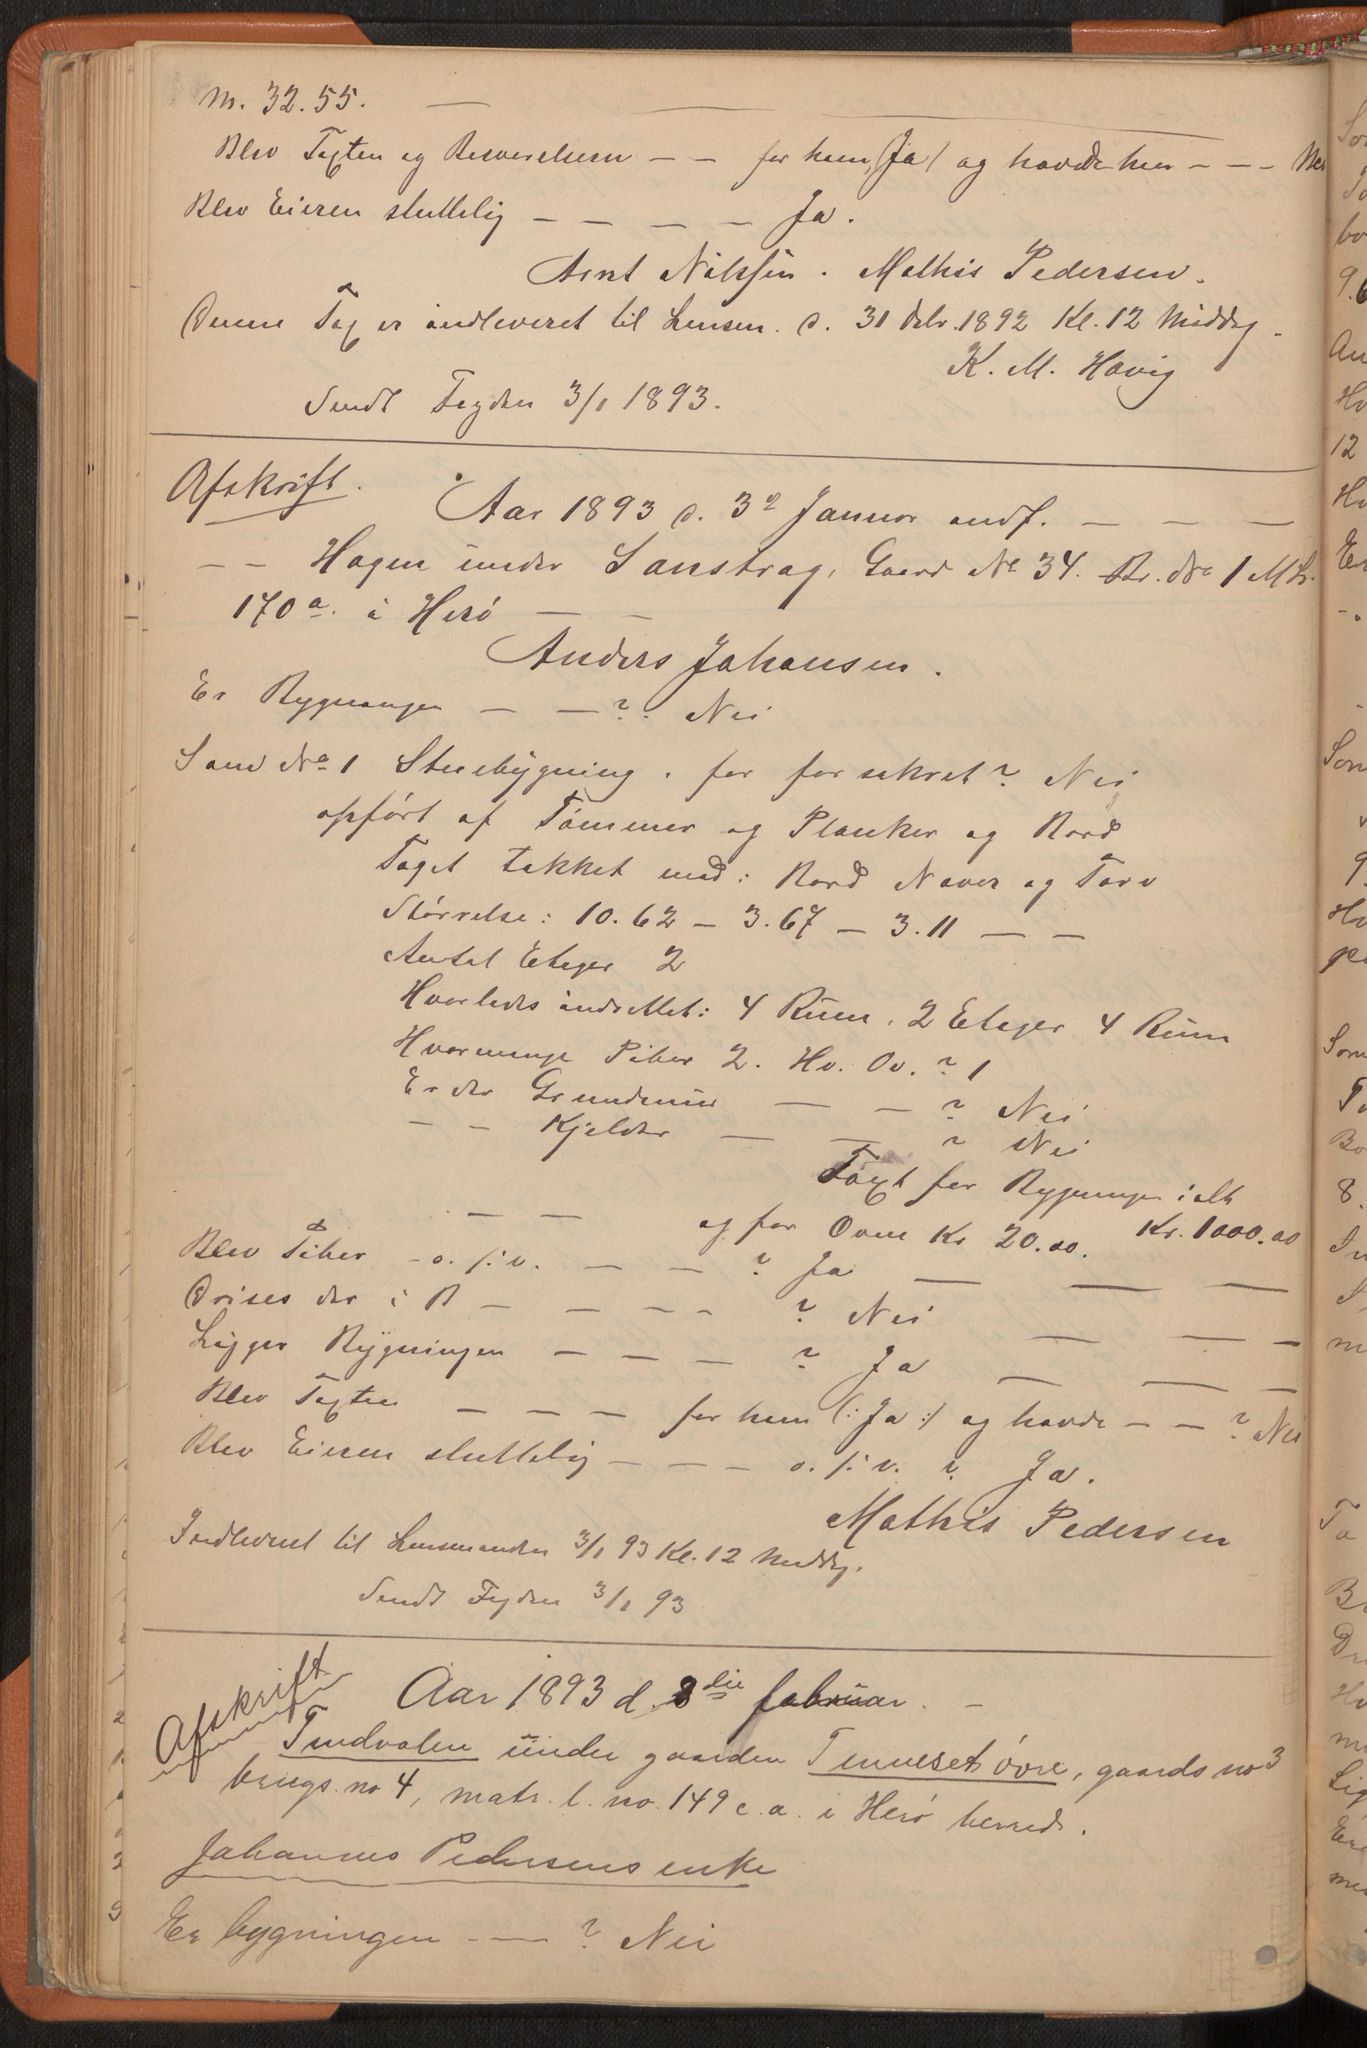 m. 32.55. —
Blev Taxten og Besvarelsern — — for ham (Ja) og havde han — — — Nei
Blev Eieren sluttelig — — — — Ja.
Arnt Nilssen. Mathis Pedersen.
Denne Tax er indleveret til Lensm. d. 31 Debr. 1892 Kl. 12 Middag.
K. M. Havig
Sendt Fogden 3/1 1893.
Afskrift. Aar 1893 d. 3? Januar andf. — — —
— — Hagen under Sanstrag, Gaard No 34. Br. No 1 M L.
170a. i Herö — —
Anders Johansen.
Er Bygningen — — ? Nei
Som No 1 Stuebygning. før forsekret? Nei
opført af Tømmer og Planker og Bord
Taget tækket med: Bord Never og Torv
Størrelse: 10.62 — 3.67 — 3.11 — —
Antal Etager 2
Hvorledes indrettet: 4 Rum, 2 Etager 4 Rum
Hvormange Piber 2. Hv. Ov. ? 1
Er der Grundmur — — ? Nei
— — Kjelder — — ? Nei
Taxt for Bygningen i alt
Kr. 1000.00
— — og for Ovne Kr 20.00.
Blev Piber — o. s. v. — — ? Ja — — —
Drives der i B — — — — ? Nei — —
Ligger Bygningen — — — ? Ja — — —
Blev Taxten — — — for ham (: Ja :) og havde — — ? Nei
Blev Eieren sluttelig — — — o. s. v. ? Ja.
Mathis Pedersen
Indleveret til Lensmanden 3/1 93 Kl. 12 Middg.
Sendt Fogden 3/1 93
Afskrift Aar 1893 d. 8die februar. —
Tindvolen under gaarden Tenneset övre, gaards no 3
brugs. no 4, matr. l. no. 149 c. a. i Herö herred.
Johannes Pedersens enke
Er bygningen — — ? Nei